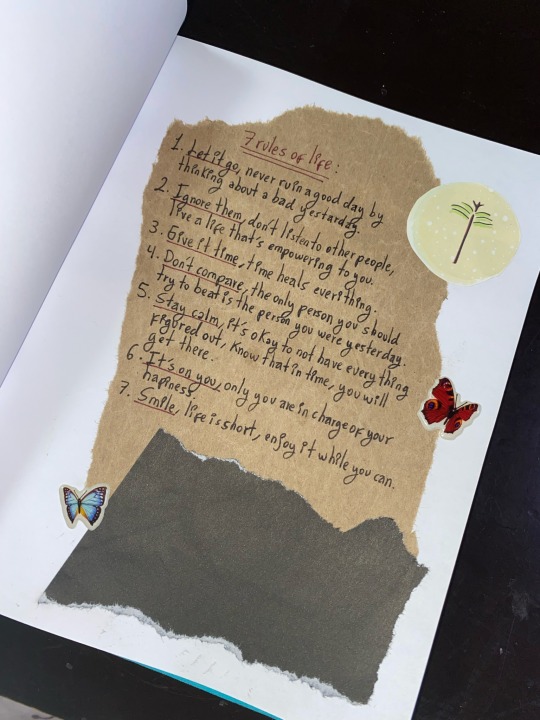 7 rules of life:
1. Let it go, never ruin a good day by
thinking about a bad yestarday.
2. Ignore them, don't listen to other people,
live a life that's empowering to you.
3. Give it time, time heals everithing.
4. Don't compare, the only person you should
try to beat is the person you were yesterday.
5. Stay calm, it's okay to not have everything
figured out, know that in time, you will
get there.
6. It's on you, only you are in charge of your
hapiness.
7. Smile, life is short, enjoy it while you can.